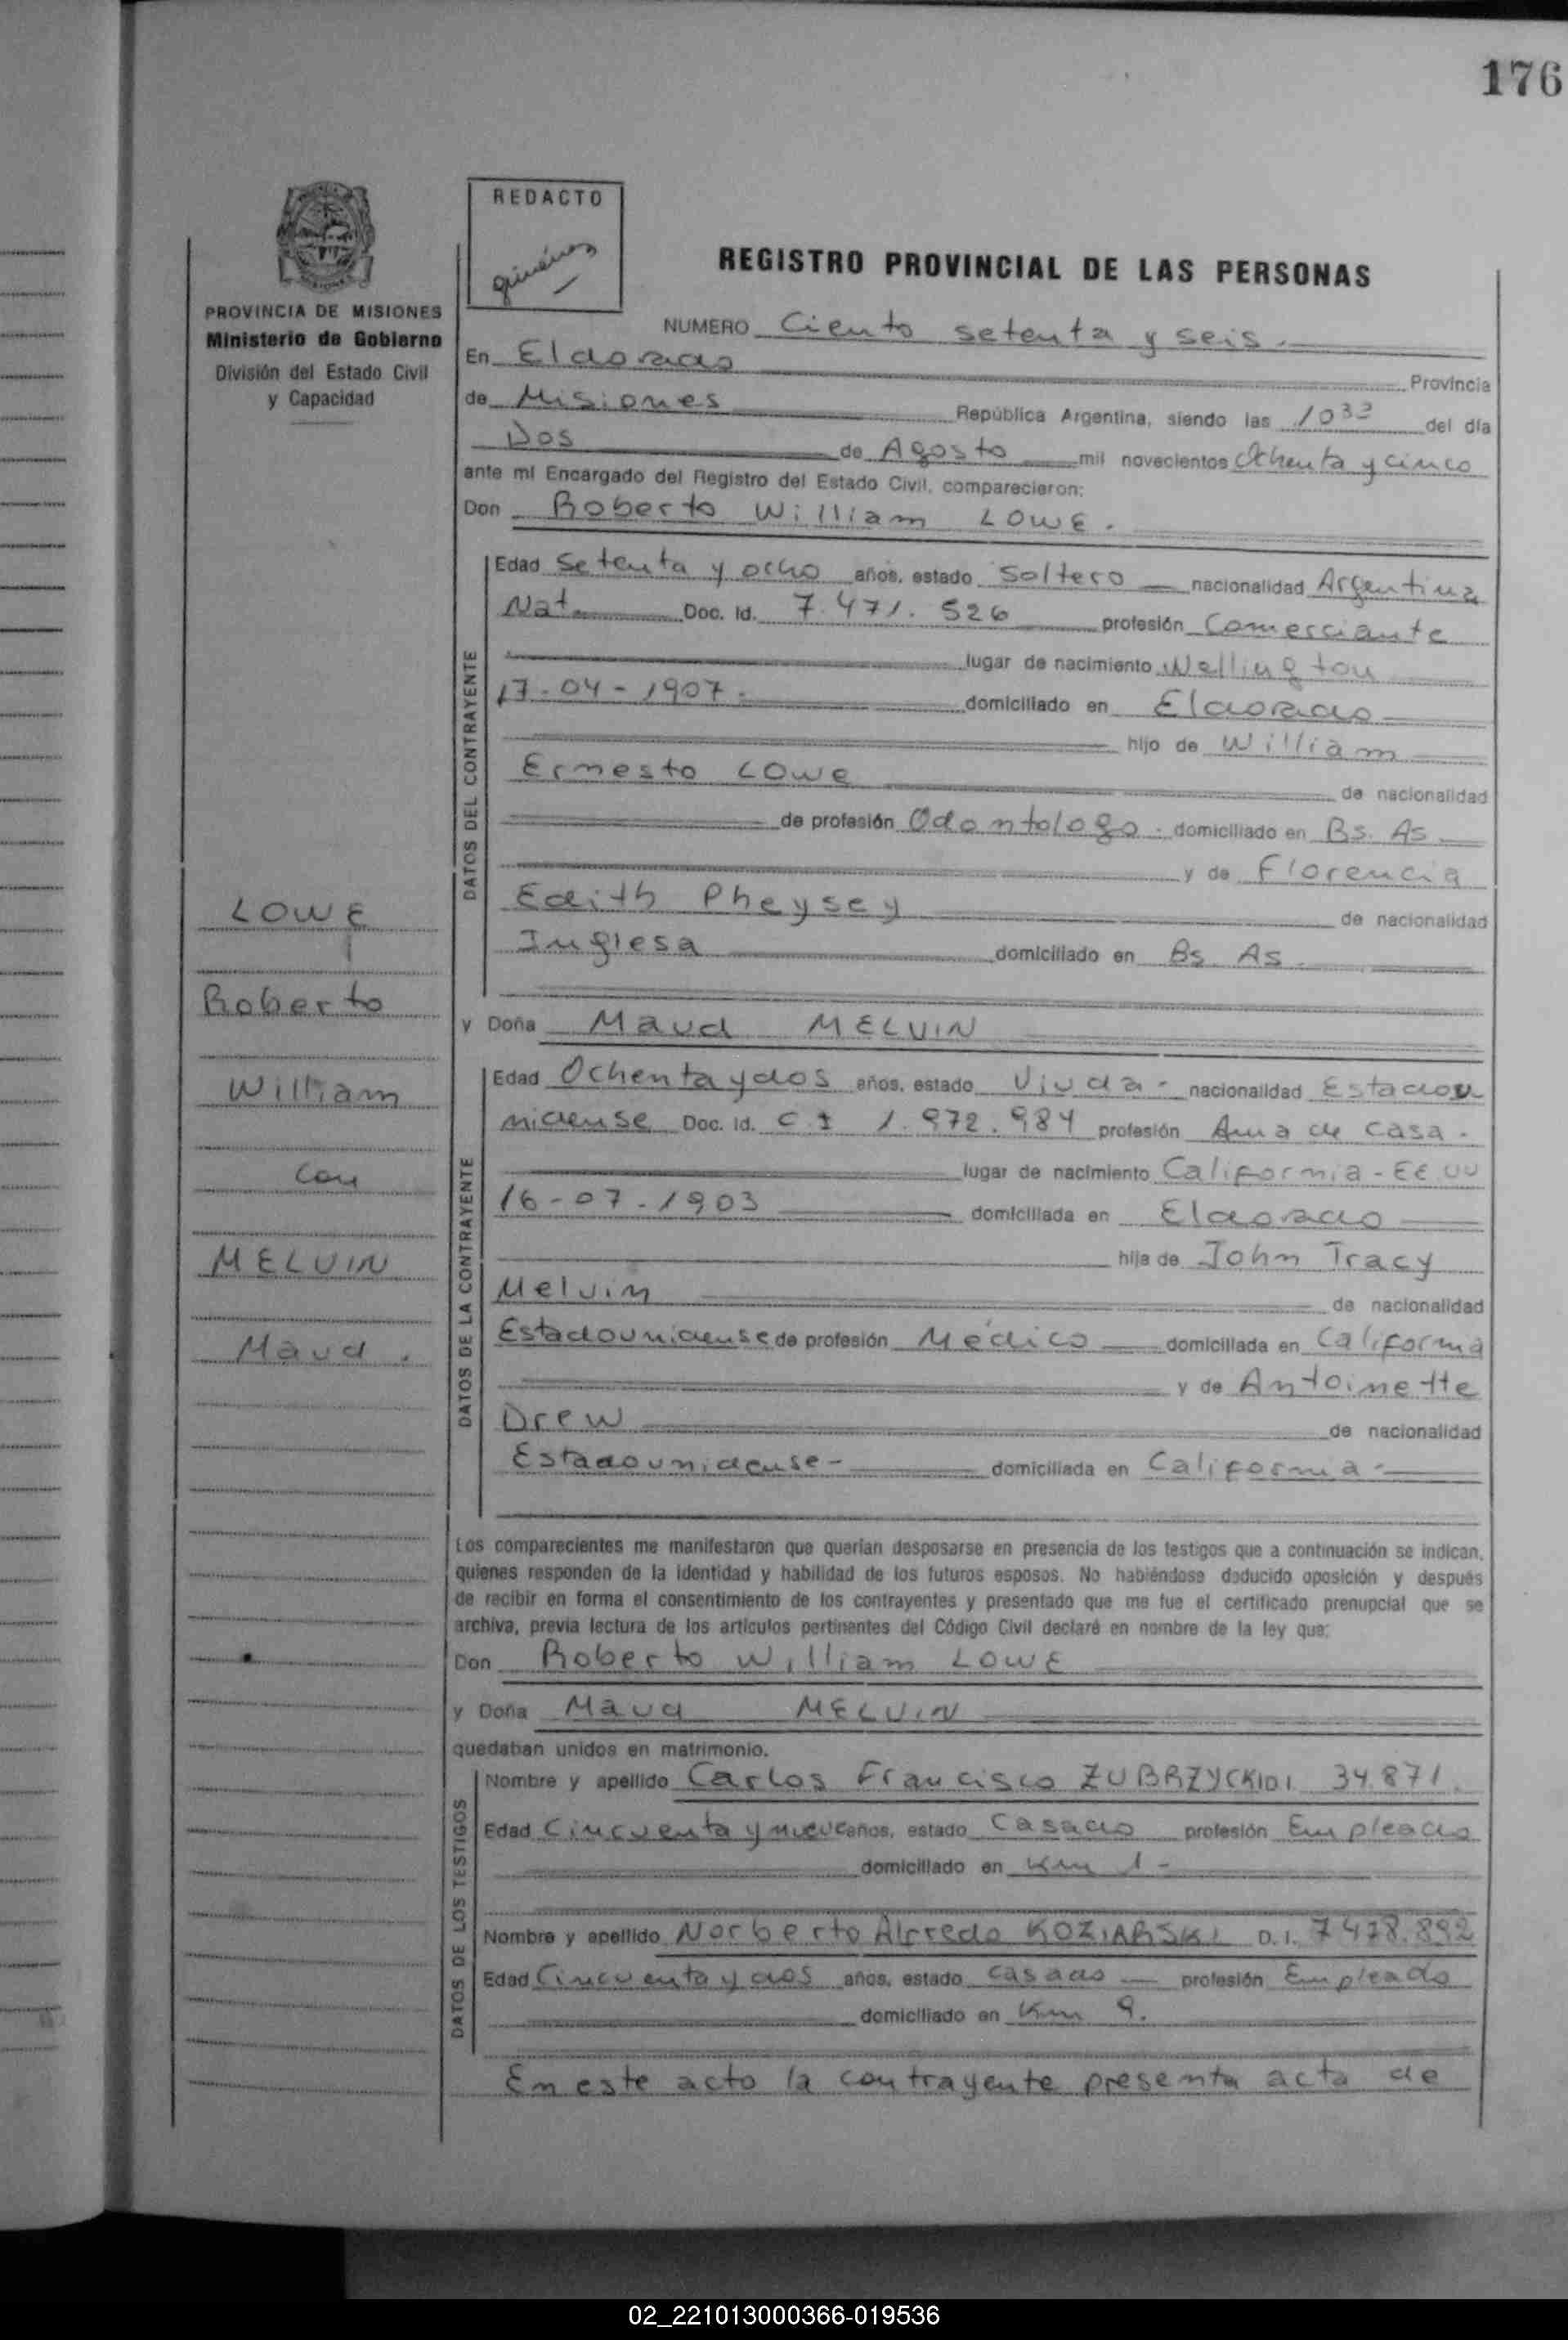 176
REDACTO
REGISTRO PROVINCIAL DE LAS PERSONAS
PROVINCIA DE MISIONES
Ministerio de Gobierno
División del Estado Civil
y Capacidad
NUMERO Ciento setenta y seis.
En Eldorado Provincia
de Misiones República Argentina, siendo las 10 33 del día
Dos de Agosto mil novecientos Ochenta y cinco
ante mí Encargado del Registro del Estado Civil, comparecieron:
Don Roberto William LOWE.
DATOS DEL CONTRAYENTE
Edad Setenta y ocho años, estado Soltero nacionalidad Argentina
Nat. Doc. Id. 7.471.526 profesión Comerciante
lugar de nacimiento Wellington
17-04-1907. domiciliado en Eldorado
hijo de William
Ernesto LOWE de nacionalidad
de profesión Odontologo. domiciliado en Bs. As
y de Florencia
Edith Pheysey de nacionalidad
Inglesa domiciliado en Bs As.
y Doña Maud MELVIN
LOWE
Roberto
William
con
MELVIN
Maud.
DATOS DE LA CONTRAYENTE
Edad Ochenta y dos años, estado Viuda- nacionalidad Estadou
nidense Doc. Id. C I 1.972.984 profesión Ama de casa.
lugar de nacimiento California-EE UU
16-07-1903 domiciliada en Eldorado
hija de John Tracy
Melvin de nacionalidad
Estadounidense de profesión Médico domiciliada en California
y de Antoinette
Drew de nacionalidad
Estadounidense- domiciliada en California-
Los comparecientes me manifestaron que querían desposarse en presencia de los testigos que a continuación se indican,
quienes responden de la identidad y habilidad de los futuros esposos. No habiéndose deducido oposición y después
de recibir en forma el consentimiento de los contrayentes y presentado que me fue el certificado prenupcial que se
archiva, previa lectura de los artículos pertinentes del Código Civil declaré en nombre de la ley que:
Don Roberto William LOWE
y Doña Maud MELVIN
quedaban unidos en matrimonio.
DATOS DE LOS TESTIGOS
Nombre y apellido Carlos Francisco ZUBRZYCKI D I 34.871.
Edad Cincuenta y nueve años, estado Casado profesión Empleado
domiciliado en Km 1-
Nombre y apellido Norberto Alfredo KOZIARSKI D.I. 7478.892
Edad Cincuenta y dos años, estado casado profesión Empleado
domiciliado en Km 9.
En este acto la contrayente presenta acta de
02_221013000366-019536